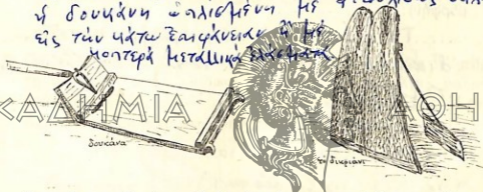 ἡ δουκάνη ὡπλισμένη μὲ
εἰς τὴν κάτω ἐπιφάνειαν ἢ μὲ
κοπτερὰ μεταλλικὰ ἐλάσματα
ΚΑΔΗΜΙΑ ΑΘΗ
δουκάνα
δικριάνι